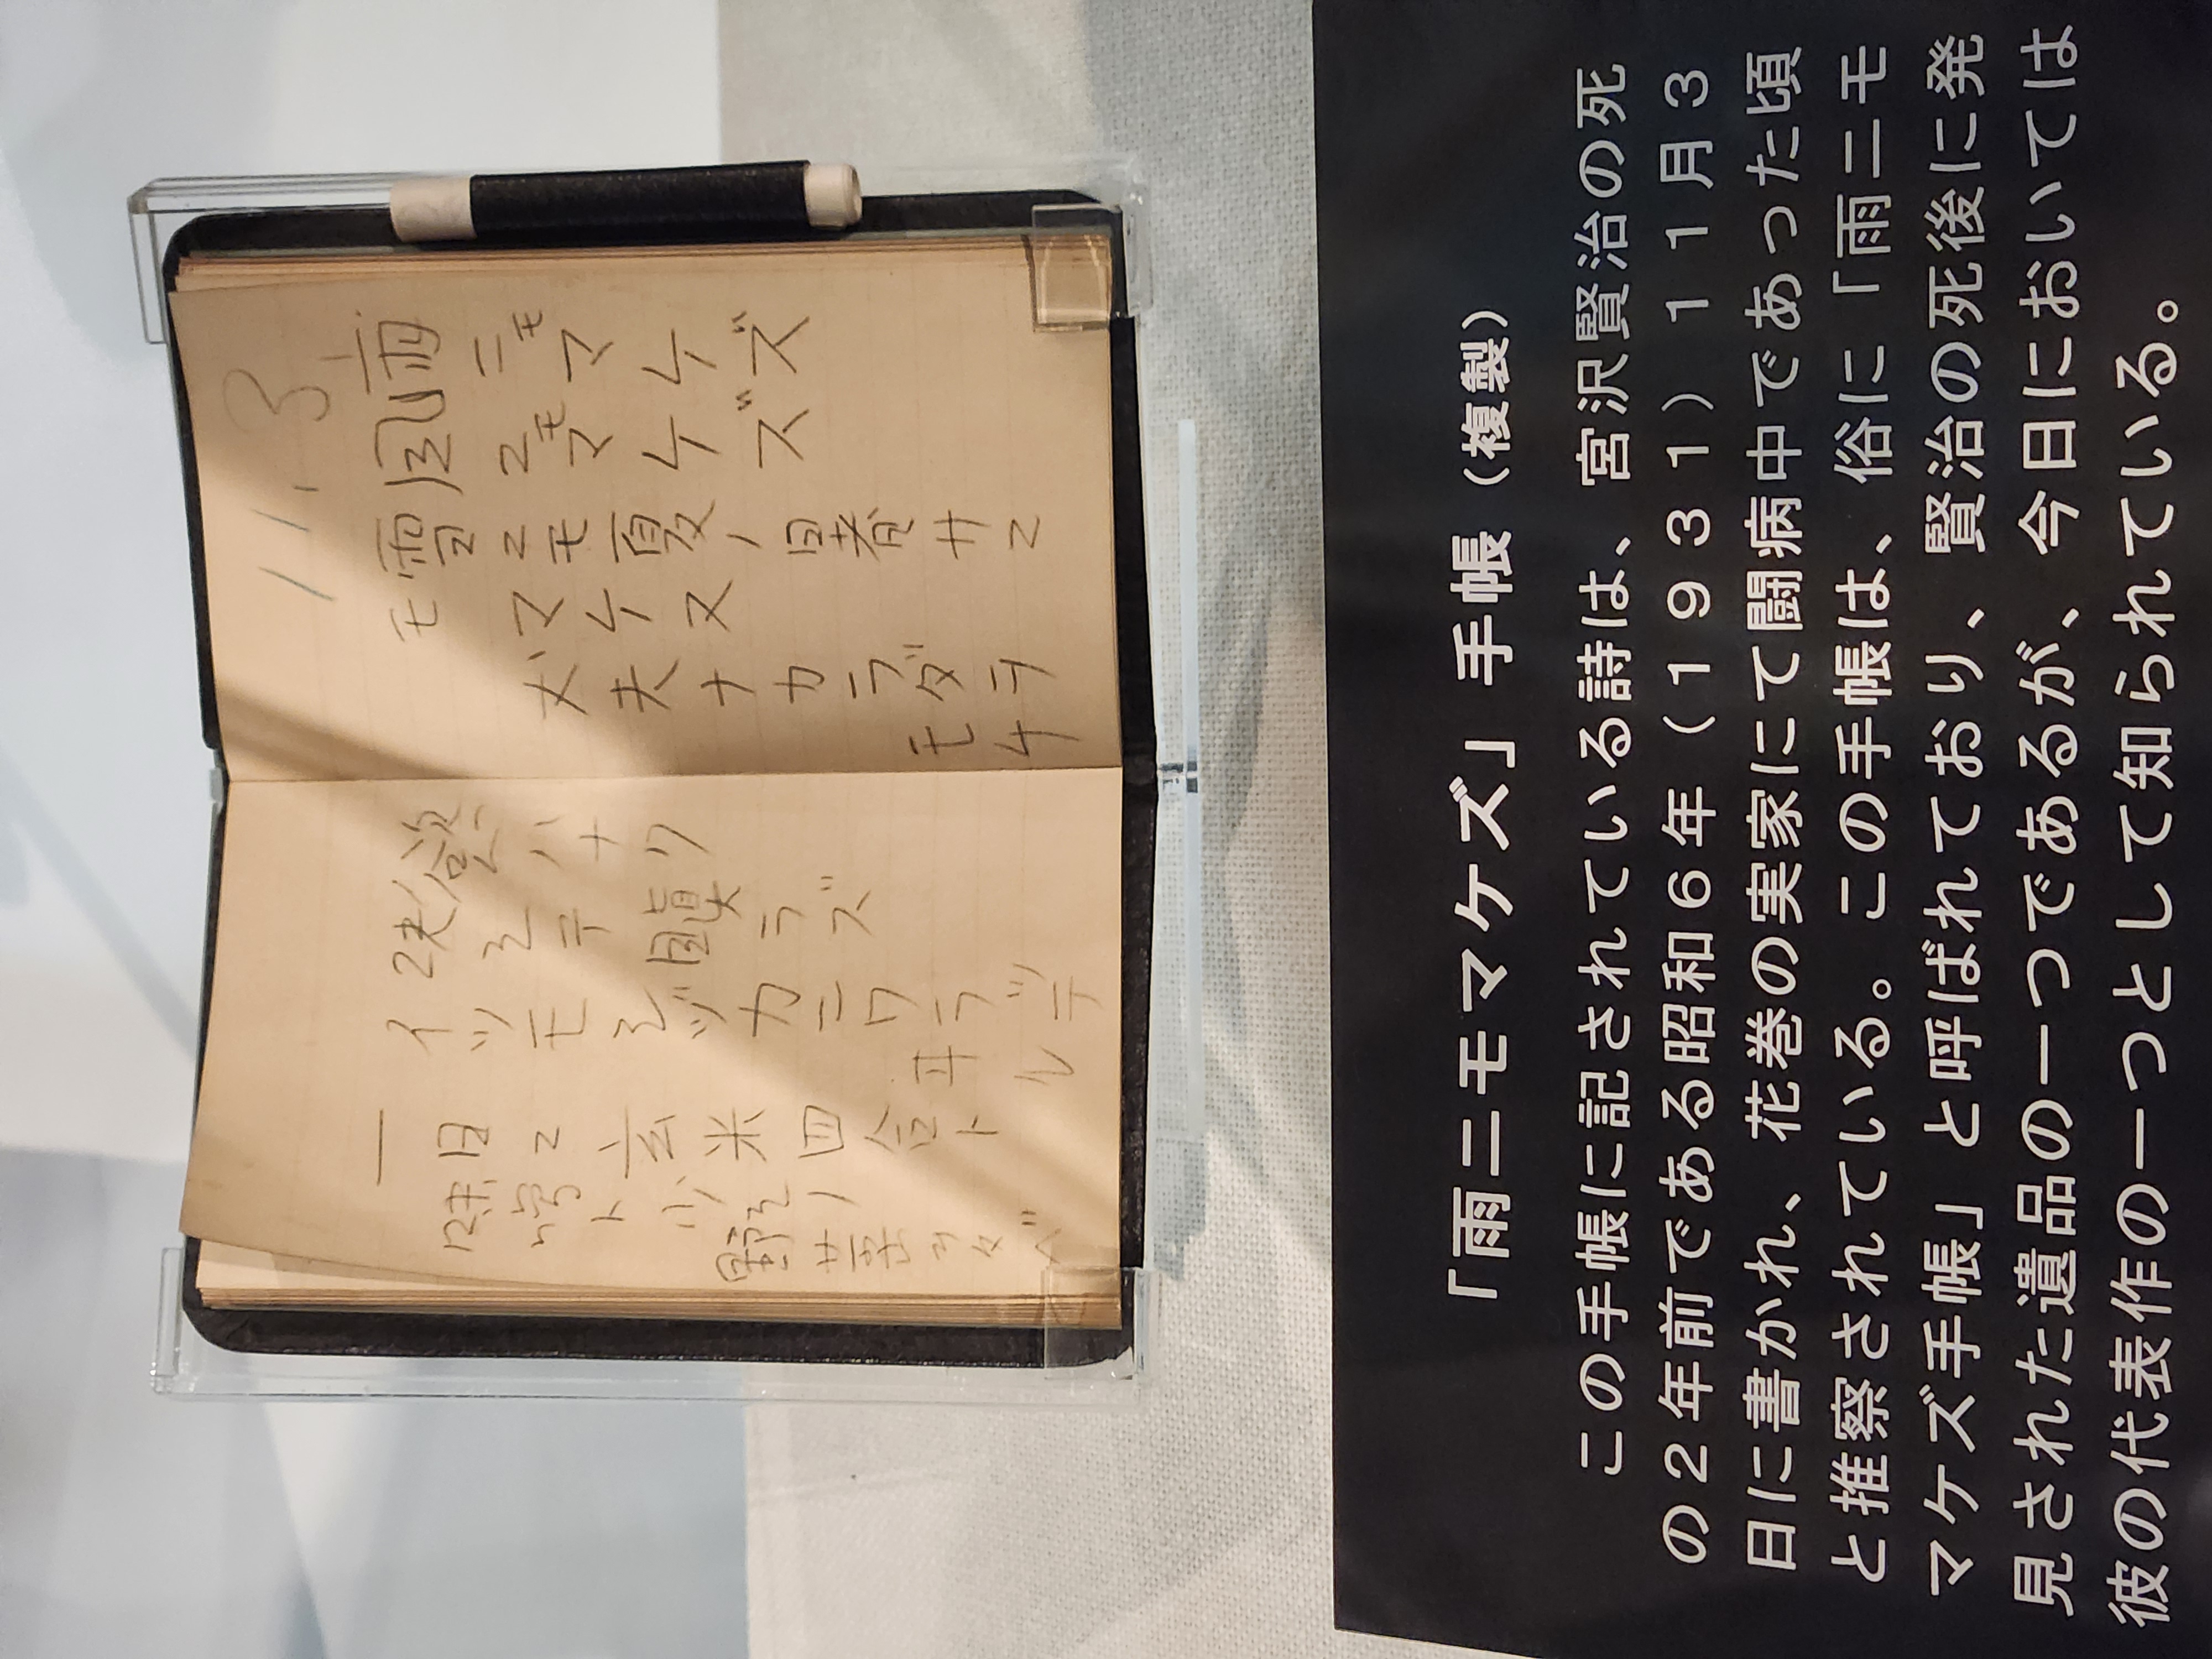 11.3
雨ニモマケズ
風ニモマケズ
雪ニモ夏ノ暑サニ
モ マケヌ
丈夫ナカラダヲ
モチ
慾ハナク
決シテ瞋ラズ
イツモシヅカニワラッテ
ヰル
一日ニ玄米四合ト
味噌ト少シノ
野菜ヲタベ
「雨ニモマケズ」手帳（複製）
この手帳に記されている詩は、宮沢賢治の死
の２年前である昭和６年（１９３１）１１月３
日に書かれ、花巻の実家にて闘病中であった頃
と推察されている。この手帳は、俗に「雨ニモ
マケズ手帳」と呼ばれており、賢治の死後に発
見された遺品の一つであるが、今日においては
彼の代表作の一つとして知られている。